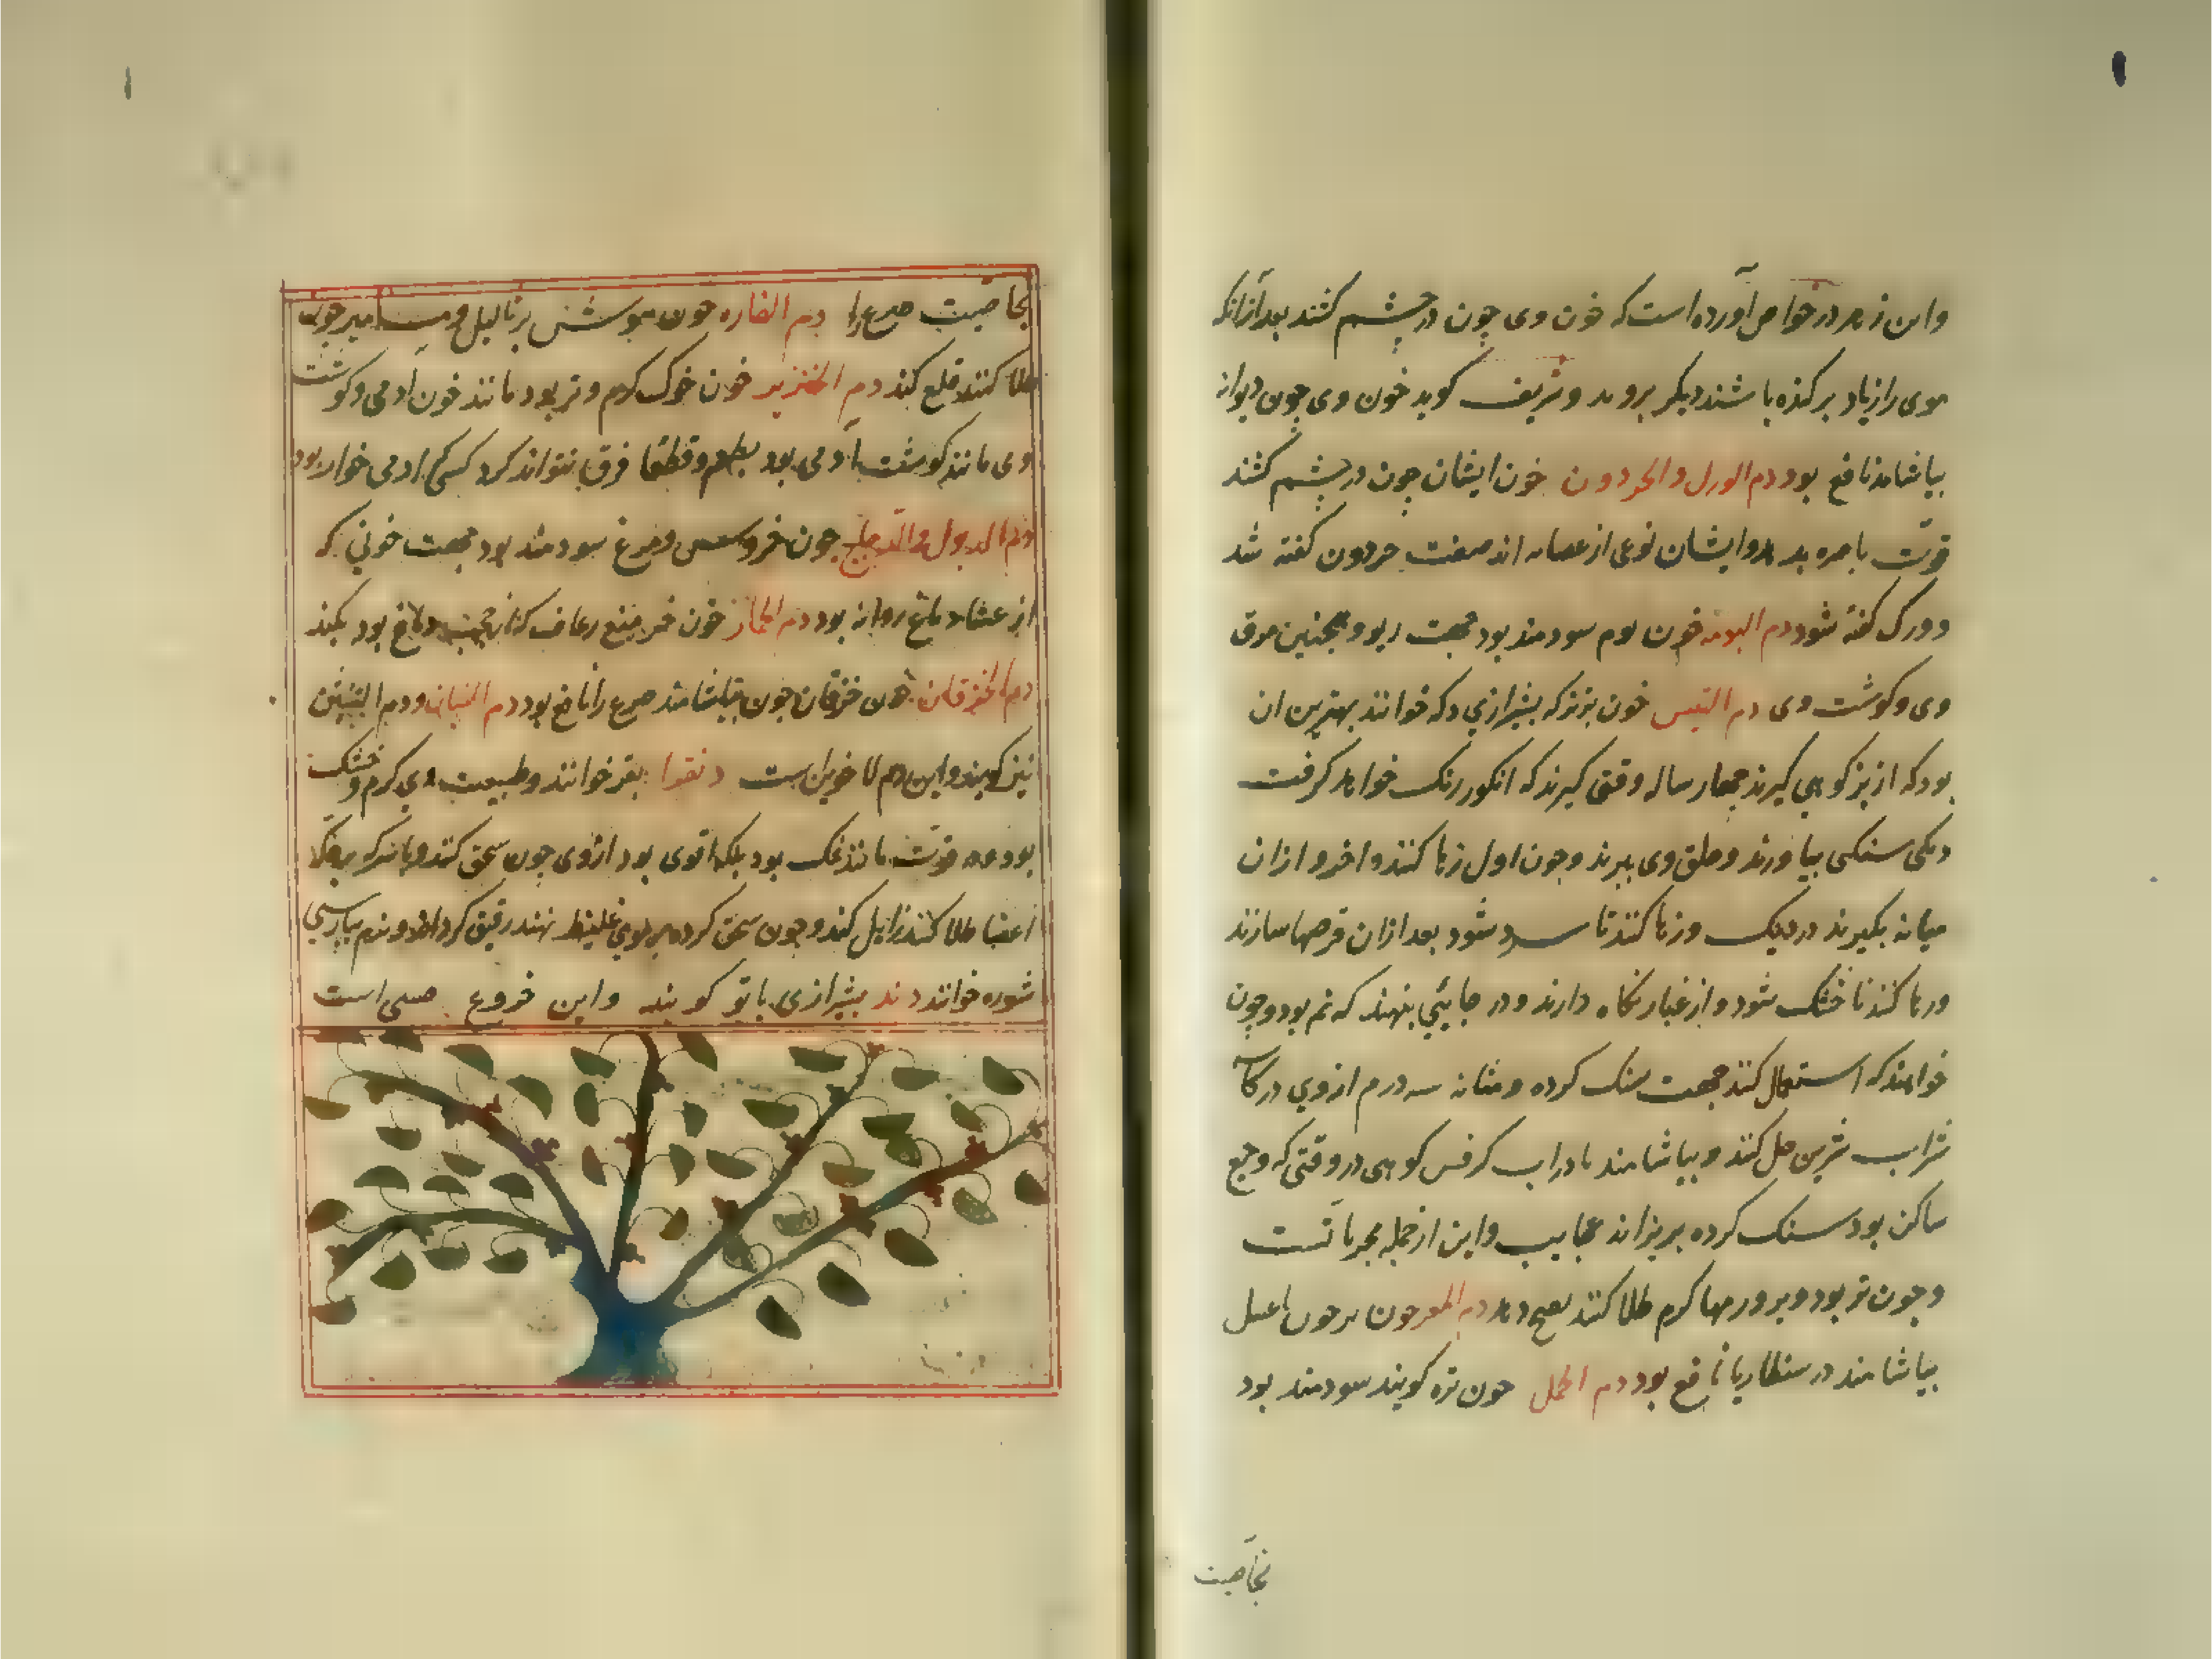 وابن زهر در خواص آورده است که خون وی چون در چشم کشند بعد از انکه
موی را زیاد بر کنده باشند دیکر بروید و شریف کوید خون وی چون دیوانه
بیاشامد نافع بود دم الورل والحردون خون ایشان چون در چشم کشند
قوّت باصره بدهد و ایشان نوعی از عصایه اند صفت حردون کفته شد
و ورل کفته شود دم البومة خون بوم سودمند بود جهت ربو و همچنین مرق
وی و کوشت وی دم التیس خون بز نر که بشیرازی دکه خوانند بهترین ان
بود که از بز کوهی کیرند چهار ساله وقتی کیرند که انکور رنک خواهد کرفت
دیکی سنکی بیاورند و حلق وی ببرند و چون اول رها کنند و اخر و از ان
میانه بکیرند در دیک و رها کنند تا سرد شود بعد ازان قرصها سازند
و رها کنند تا خشک شود و از غبار نکاه دارند و در جائی بنهند که نم بود و چون
خواهند که استعمال کنند جهت سنک کرده و مثانه سه درم از وی در
شراب شیرین حل کنند و بیاشامند یا در اب کرفس کوهی در وقتی که وجع
ساکن بود سنک کرده بریزاند عجایب و این از جمله مجرباتست
و چون تر بود و بر ورمها کرم طلا کنند نضج دهد دم خون با عسل
بیاشامند در سنطاریا نافع بود دم الحمل خون بره کویند سودمند بود
بخاصیت
بخاصیت صرع را دم الفاره خون موش بر ثالیل و مسامیر چون
طلا کنند قلع کند دم الخنزیر خون خوک کرم و تر بود مانند خون آدمی و کوشت
وی مانند کوشت آدمی بود بطعم و قطعا فرق نتواند کرد کسی که ادمی خوار بود
دم الدیوک والدجاج خون خروس و مرغ سودمند بود جهت خونی که
از غشاء دماغ روانه بود دم الحمار خون خر منع رعاف که از حجب دماغ بود بکند
دم الخرقان خون خرقان چون بیاشامند صرع را نافع بود دم الثعبان و دم التنین
نیز کویند و این دم الاخوین است دنقدا بقر خوانند و طبیعت وی کرم و خشک
بود و قوّت مانند نمک بود بلکه اقوی بود از وی چون سحق کنند و با سرکه بر
اعضا طلا کنند زایل کند و چون سحق کرده بر موی غلیظ نهند رقیق کرداند و بپارسی
شوره خوانند دند بشیرازی باتو کویند و این خروع صینی است